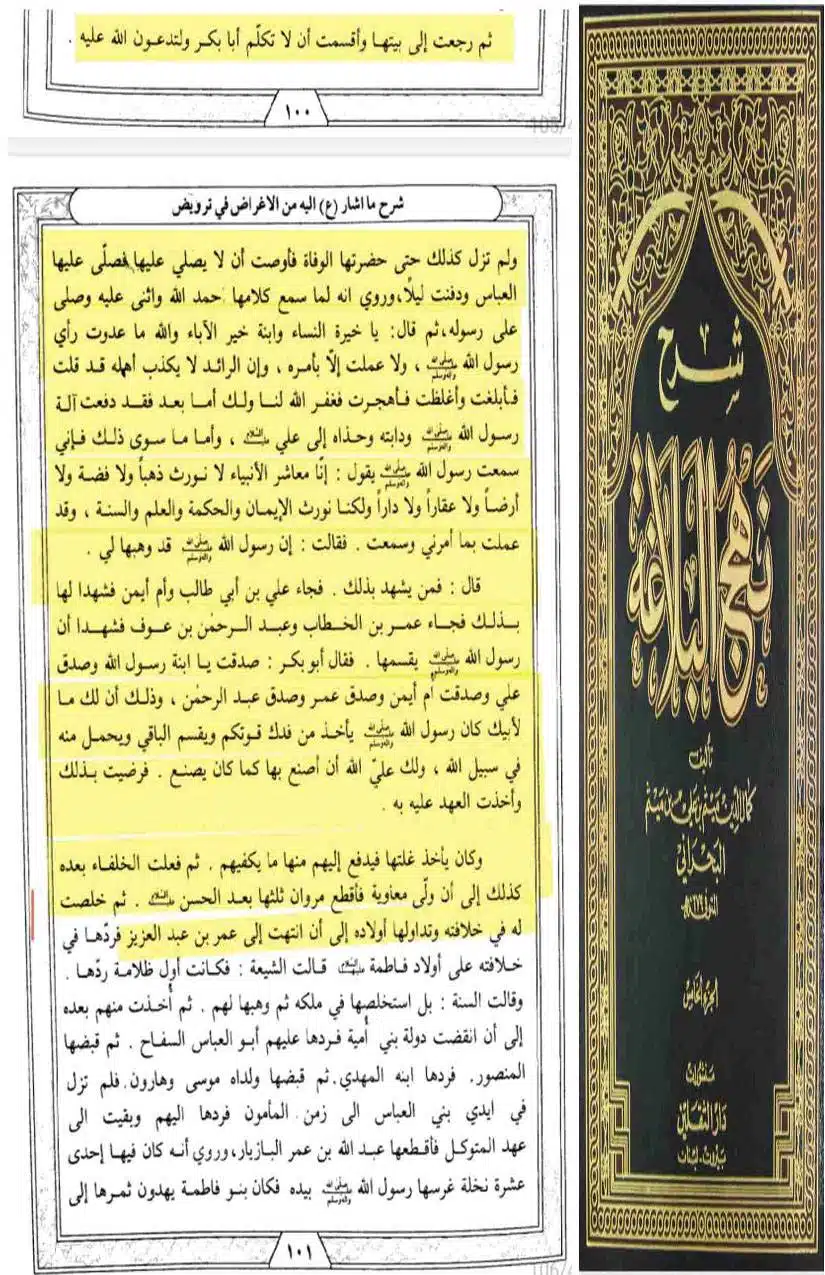 ثم رجعت إلى بيتها وأقسمت أن لا تكلّم أبا بكر ولتدعون الله عليه .
١٠٠
شرح ما اشار (ع) اليه من الاغراض في ترويض
ولم تزل كذلك حتى حضرتها الوفاة فأوصت أن لا يصلي عليها فصلّى عليها
العباس ودفنت ليلًا، وروي انه لما سمع كلامها حمد الله واثنى عليه وصلى
على رسوله، ثم قال: يا خيرة النساء وابنة خير الآباء والله ما عدوت رأي
رسول الله ﷺ ، ولا عملت إلّا بأمره ، وإن الرائد لا يكذب أهله قد قلت
فأبلغت وأغلظت فأهجرت فغفر الله لنا ولك أما بعد فقد دفعت آلة
رسول الله ﷺ ودابته وحذاه إلى علي عليه السلام ، وأما ما سوى ذلك فإني
سمعت رسول الله ﷺ يقول : إنّا معاشر الأنبياء لا نورث ذهباً ولا فضة ولا
أرضاً ولا عقاراً ولا داراً ولكنا نورث الإيمان والحكمة والعلم والسنة ، وقد
عملت بما أمرني وسمعت . فقالت : إن رسول الله ﷺ قد وهبها لي .
قال : فمن يشهد بذلك . فجاء علي بن أبي طالب وأم أيمن فشهدا لها
بذلك فجاء عمر بن الخطاب وعبد الرحمٰن بن عوف فشهدا أن
رسول الله ﷺ يقسمها . فقال أبو بكر : صدقت يا ابنة رسول الله وصدق
علي وصدقت أم أيمن وصدق عمر وصدق عبد الرحمٰن ، وذلك أن لك ما
لأبيك كان رسول الله ﷺ يأخذ من فدك قوتكم ويقسم الباقي ويحمل منه
في سبيل الله ، ولك عليّ الله أن أصنع بها كما كان يصنع . فرضيت بذلك
وأخذت العهد عليه به .
وكان يأخذ غلتها فيدفع إليهم منها ما يكفيهم . ثم فعلت الخلفاء بعده
كذلك إلى أن ولّى معاوية فأقطع مروان ثلثها بعد الحسن عليه السلام . ثم خلصت
له في خلافته وتداولها أولاده إلى أن انتهت إلى عمر بن عبد العزيز فردّها في
خلافته على أولاد فاطمة عليها السلام قالت الشيعة : فكانت أول ظلامة ردّها .
وقالت السنة : بل استخلصها في ملكه ثم وهبها لهم . ثم أُخذت منهم بعده
إلى أن انقضت دولة بني أمية فردها عليهم أبو العباس السفاح . ثم قبضها
المنصور. فردها ابنه المهدي. ثم قبضها ولداه موسى وهارون. فلم تزل
في ايدي بني العباس الى زمن المأمون فردها اليهم وبقيت الى
عهد المتوكل فأقطعها عبد الله بن عمر البازيار، وروي أنه كان فيها إحدى
عشرة نخلة غرسها رسول الله ﷺ بيده فكان بنو فاطمة يهدون ثمرها إلى
١٠١
شرح
نهج البلاغة
تأليف
كمال الدين ميثم بن علي بن ميثم
البحراني
المتوفى ٦٧٩ هـ
الجزء الخامس
منشورات
دار الثقلين
بيروت - لبنان